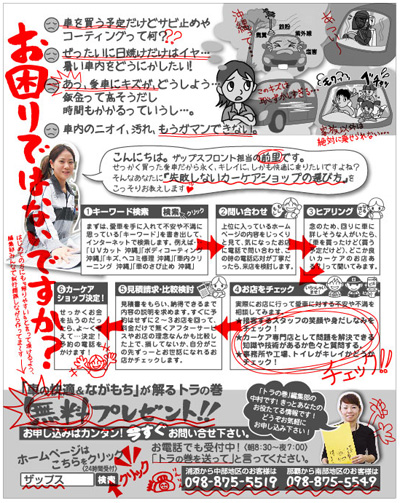 お困りではないですか？
車を買う予定だけどサビ止めや
コーティングって何??
ぜったいに日焼けだけはイヤ…
暑い車内をどうにかしたい！
あっ、愛車にキズが、どうしよう…
鈑金って高そうだし
時間もかかるっていうし…。
車内のニオイ、汚れ、もうガマンできない！。
沖縄って
鉄粉
紫外線
塩害
このキズは
こんにちは。ザップスフロント担当の前里です。
せっかく買った愛車だから永く、キレイに、しかも快適に乗りたいですよね？
そんなあなたに『失敗しないカーケアショップの選び方』を
こっそりお教えします
①キーワード検索
検索 クリック
まずは、愛車を手に入れて不安や不満に
思っている「キーワード」を書き出して、
インターネットで検索します。例えば…
「UVカット 沖縄」「ボディコーティング
沖縄」「キズ、ヘコミ修理 沖縄」「車内クリ
ーニング 沖縄」「車のさび止め 沖縄」
②問い合わせ
上位に入っているホーム
ページの内容をじっくり
と見て、気になったお店
に電話で問い合わせ。こ
の時の電話応対が丁寧だ
ったら、来店を検討します。
③ヒアリング
④お店をチェック
実際にお店に行って愛車に対する不安や不満を
相談してみます。
★接客するスタッフの笑顔や身だしなみを
チェック！
★カーケア専門店として問題を解決できる
知識や技術があるか色々と質問する。
★事務所や工場、トイレがキレイかどうか
チェック！
チェック!!
⑤見積請求・比較検討
見積書をもらい、納得できるまで
内容の説明を求めます。すぐに予
約はせずに2〜3お店を回って、
料金だけで無くアフターサービ
スやお店の理念なんかも比較し
た上で、損してないか、自分がこ
の先ずーっとお世話になれるお
店かチェックします。
⑥カーケア
ショップ決定！
せっかくお金
を払うのだっ
たら、よ〜く考
えて…決定！
予約の電話をか
けます！
「車の快適＆ながもち」が解るトラの巻
無料プレゼント!!
お申し込みはカンタン！今すぐお問い合せ下さい。
ホームページは
こちらをクリック
(24時間受付)
ザップス 検索
クリック
お電話でも受付中！(朝8:30〜夜7:00)
「トラの巻を送って」と言ってください。
浦添から中部地区のお客様は
098-875-5519
那覇から南部地区のお客様は
098-875-5549
「トラの巻」の編集部の
中村です。きっとあなたの
お役たてる情報です！
どうぞお気軽に
お申し込み下さい！